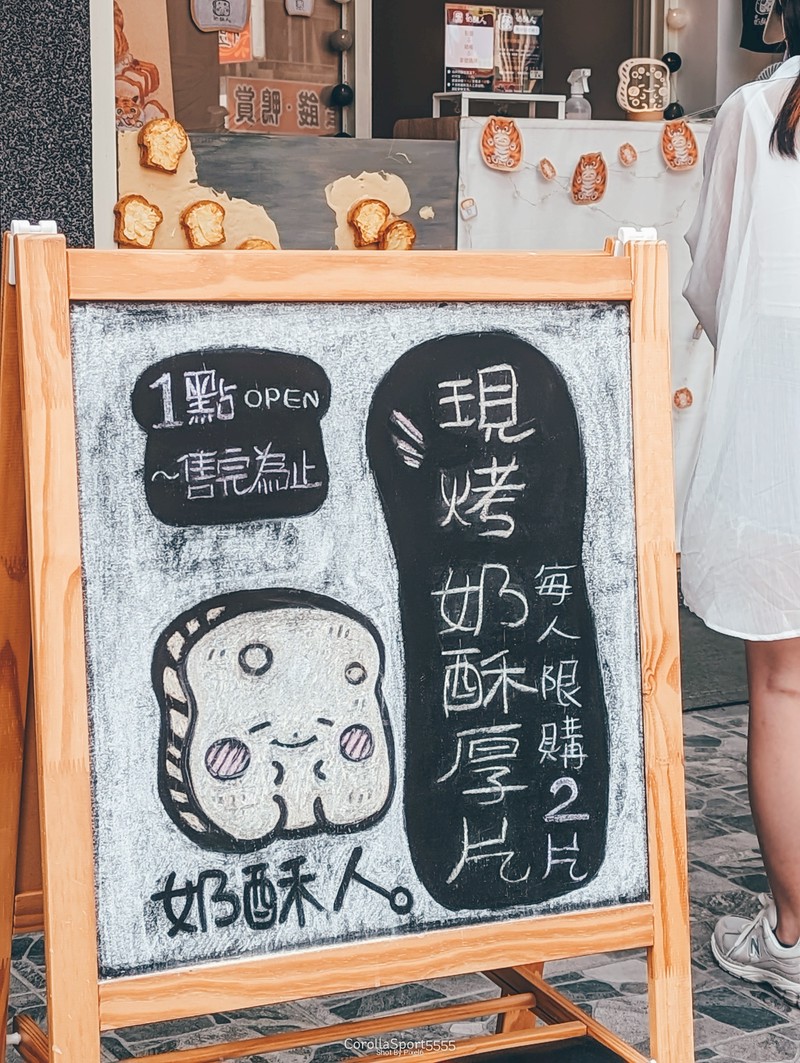 賞鴨·錢
1點 OPEN
~售完為止
現烤奶酥厚片
每人限購2片
奶酥人
CorollaSport5555
Shot By Pixel6